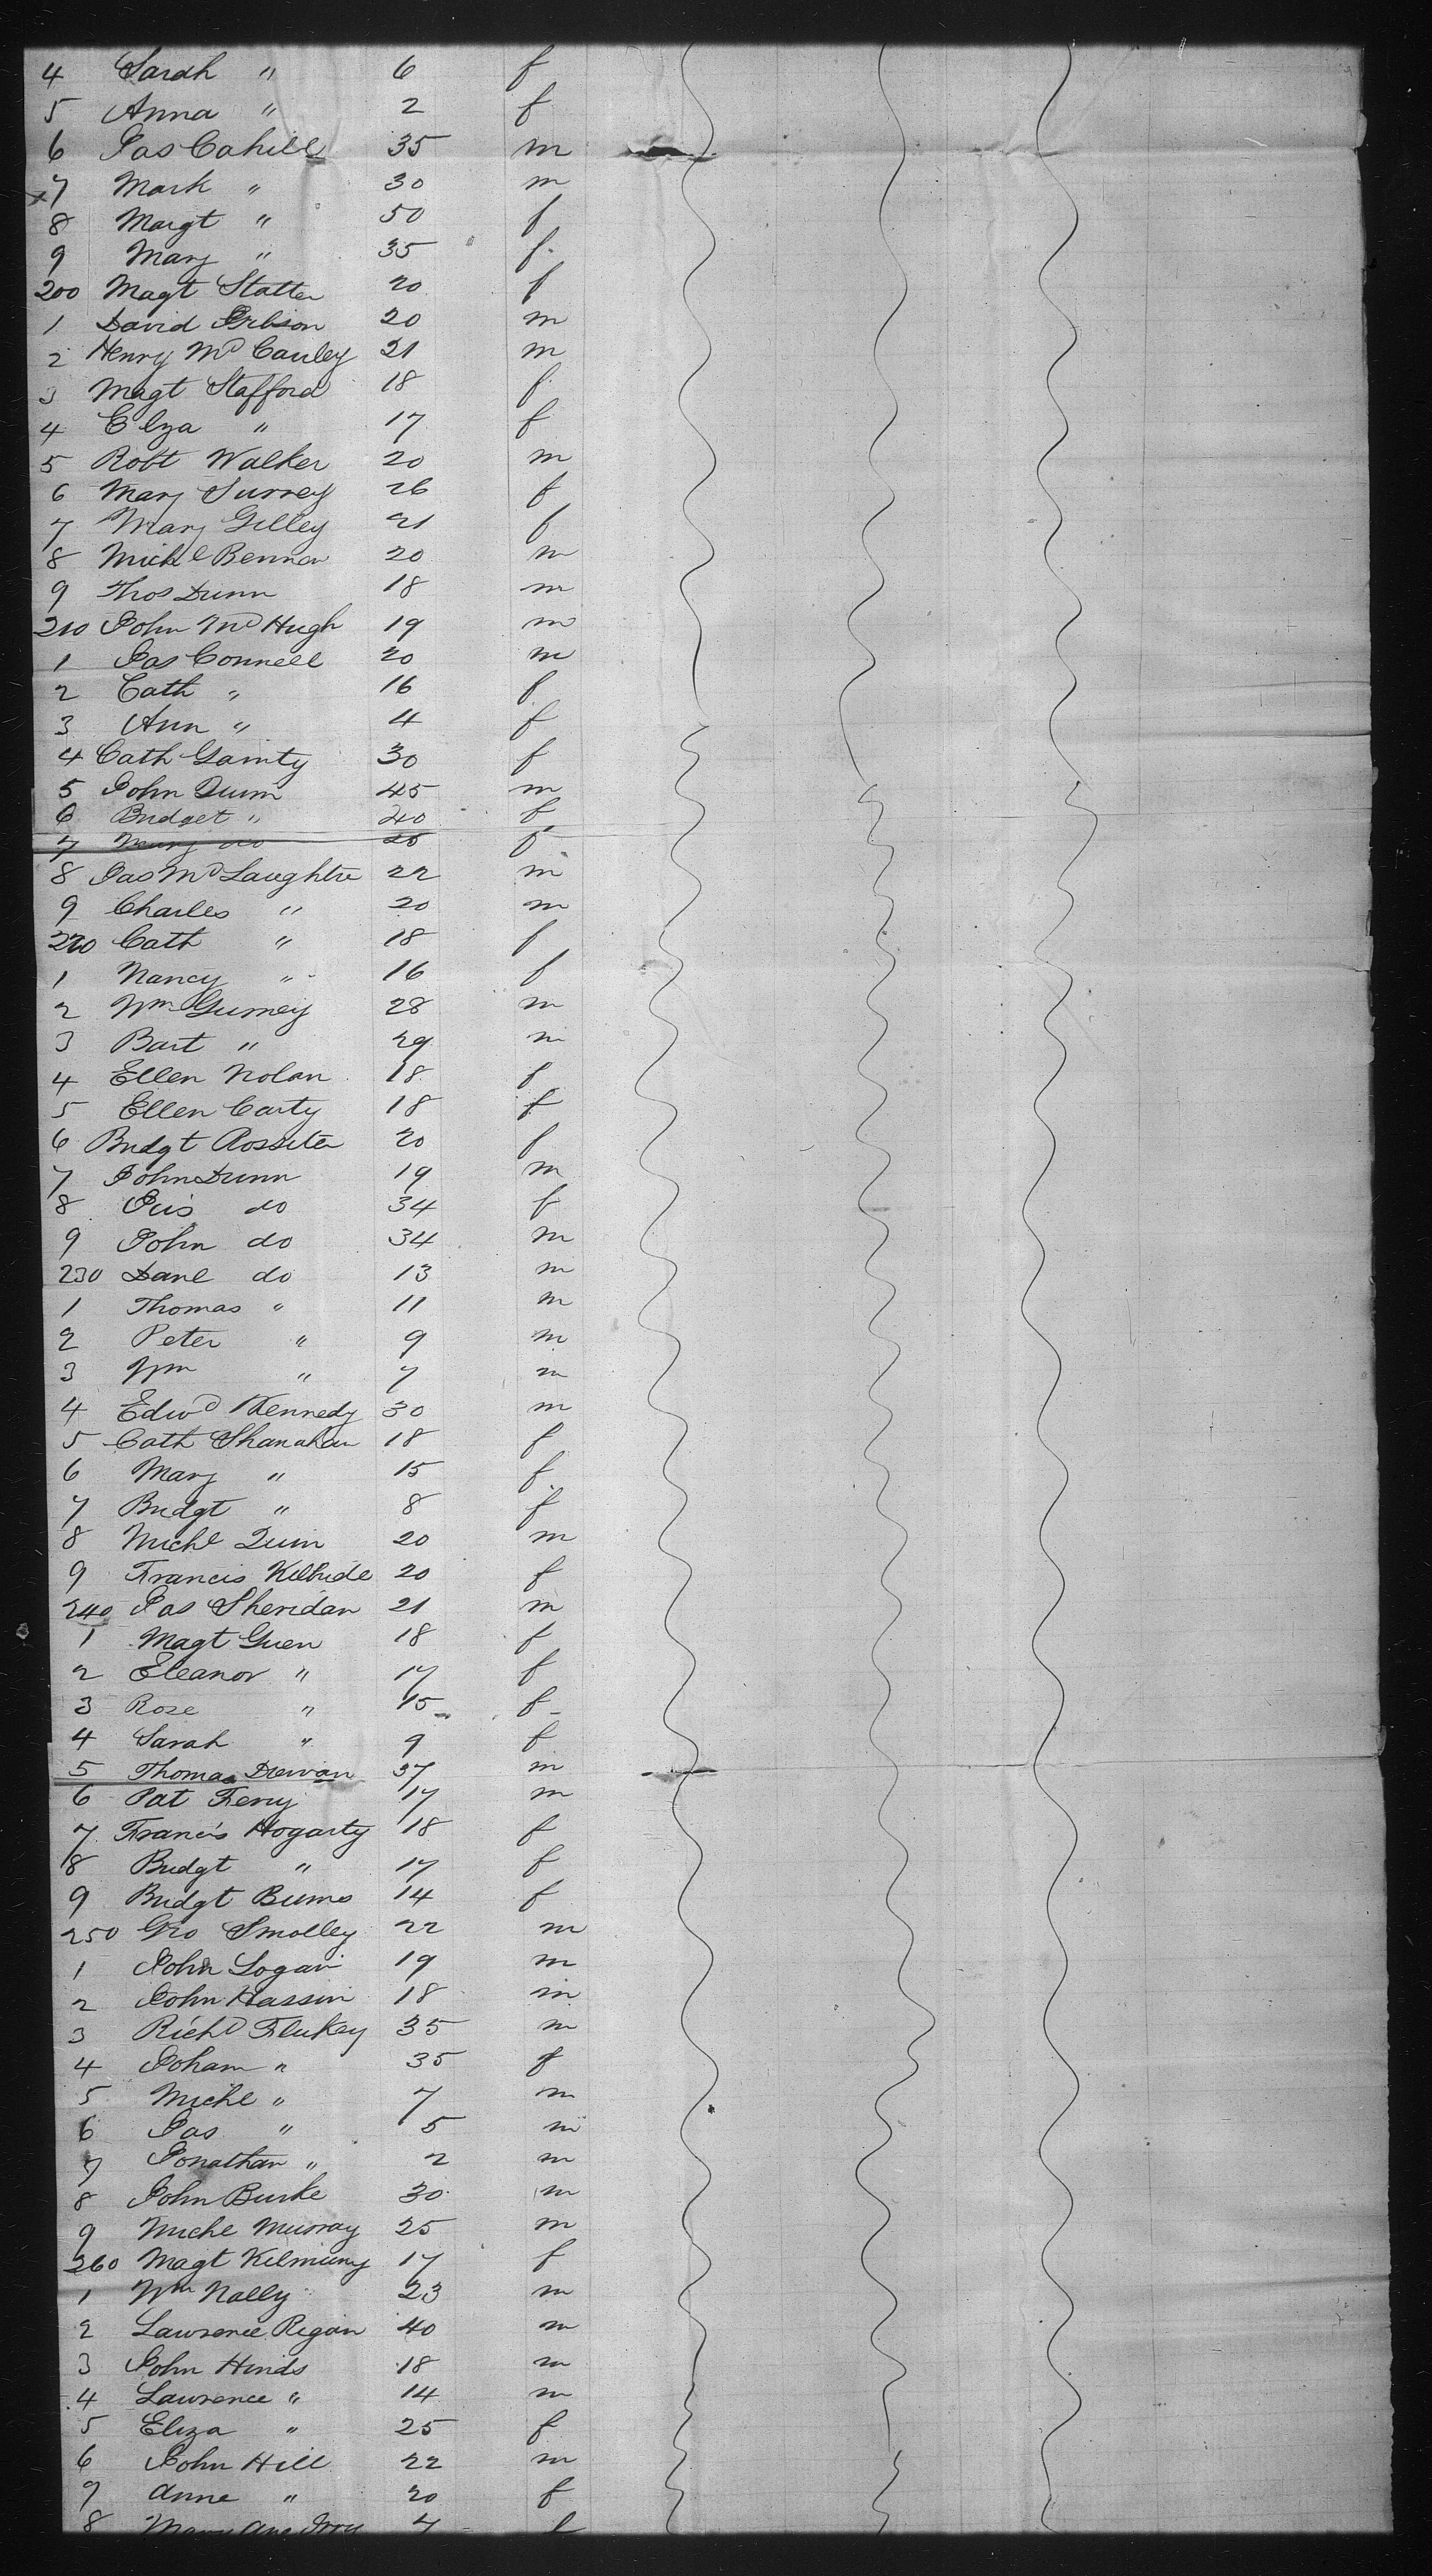 4 Sarah " 6 f
5 Anna " 2 f
6 Jas Cahill 35 m
x7 Mark " 30 m
8 Margt " 50 f
9 Mary " 35 f
200 Magt Statter 20 f
1 David 20 m
2 Henry McCauley 21 m
3 Magt Stafford 18 f
4 Elza " 17 f
5 Robt Walker 20 m
6 Mary Surrey 26 f
7 Mary Gilley 21 f
8 Michl Bennan 20 m
9 Thos Dunn 18 m
210 John McHugh 19 m
1 Jas Connell 20 m
2 Cath " 16 f
3 Ann " 4 f
4 Cath Gainty 30 f
5 John Quin 45 m
6 Bridget " 40 f
7 Mary do 25 f
8 Jas McLaughtre 22 m
9 Charles " 20 m
220 Cath " 18 f
1 Nancy " 16 f
2 Wm Gurney 28 m
3 Bart " 29 m
4 Ellen Nolan 18 f
5 Ellen Carty 18 f
6 Bridgt Rossiter 20 f
7 John Dunn 19 m
8 do 34 f
9 John do 34 m
230 Danl do 13 m
1 Thomas " 11 m
2 Peter " 9 m
3 Wm " 7 m
4 Edwd Kennedy 30 m
5 Cath Shanahan 18 f
6 Mary " 15 f
7 Bridgt " 8 f
8 Michl Quin 20 m
9 Francis Kilbride 20 f
240 Jas Sheridan 21 m
1 Magt Green 18 f
2 Eleanor " 17 f
3 Rose " 15 f
4 Sarah " 9 f
5 Thomas Dewan 37 m
6 Pat Ferry 17 m
7 Francis Hogarty 18 f
8 Bridgt " 17 f
9 Bridgt Burns 14 f
250 Geo Smolley 22 m
1 John Logan 19 m
2 John Hassin 18 m
3 Richd Flukey 35 m
4 Joham " 35 f
5 Michl " 7 m
6 Jas " 5 m
7 Jonathan " 2 m
8 John Burke 30 m
9 Michl Murray 25 m
260 Magt Kilmurry 17 f
1 Wm Nally 23 m
2 Lawrence Regan 40 m
3 John Hinds 18 m
4 Lawrence " 14 m
5 Eliza " 25 f
6 John Hill 22 m
7 Anne " 20 f
8 Mary Ann 4 f